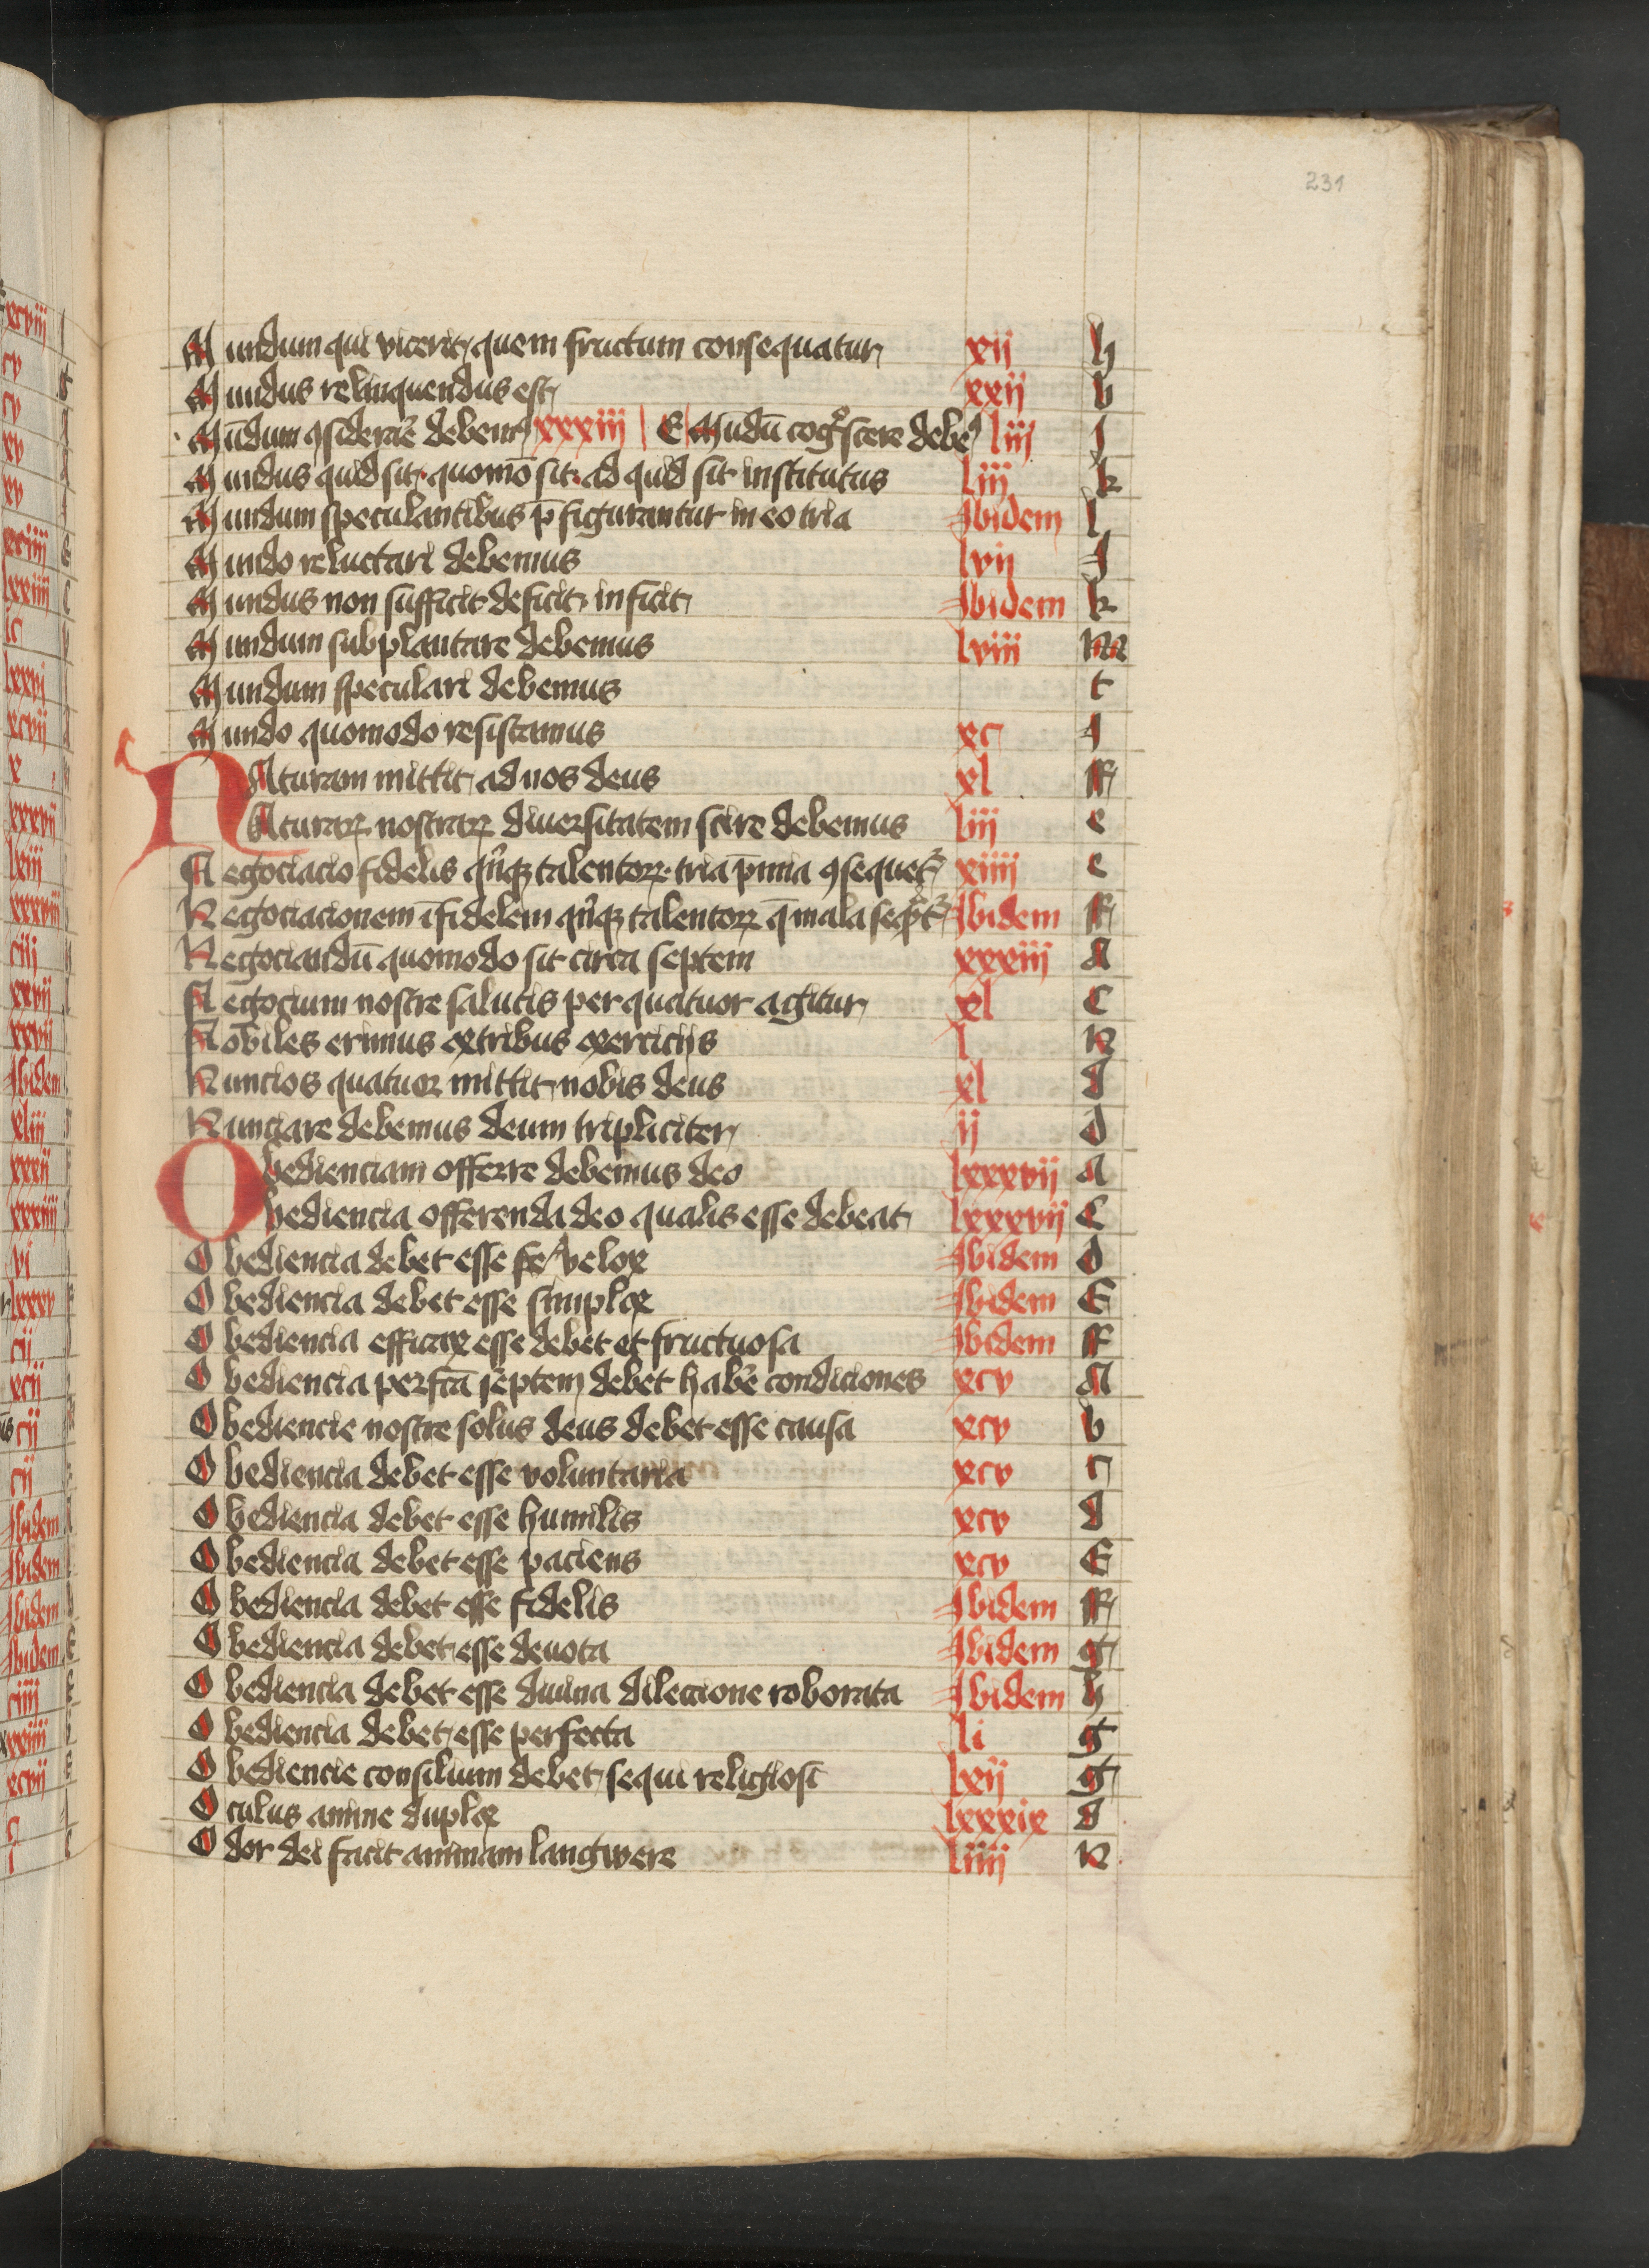 231
Mundum qui vicerit quem fructum consequatur xij h
Mundus relinquendus est xxij b
Mūdum ꝯsiderare debem⁹ xxxiij E Mūdū cogͦscere debem⁹ liij J
Mundus quid sit quomō sit ad quid sit institutus liij k
Mundum speculantibus p̄figurantur in eo tria Ibidem l
Mundo reluctari debemus lvij J
Mundus non sufficit deficit inficit Ibidem k
Mundum subplantare debemus lviij m
Mundum speculari debemus t
Mundo quomodo resistamus xc J
NAturam mittit ad nos deus xl ff
Naturaꝝ nostraꝝ diuersitatem scire debemus liij e
Negociacio fidelis qͥnqꝫ talentoꝝ tria p̄mia ꝯsequet᷑ xiiij e
Negociacionem īfidelem qͥnqꝫ talentoꝝ q̄ mala Ibidem ff
Negociandū quomodo sit circa septem xxxiij A
Negocium nostre salutis per quatuor agitur xl C
Nobiles erimus ex tribus exerciciis l K
Nuncios quatuor mittit nobis deus xl d
Nunciare debemus deum tripliciter ij d
Obedienciam offerre debemus deo lxxxvij A
Obediencia offerenda deo qualis esse debeat lxxxvij C
Obediencia debet esse velox Ibidem d
Obediencia debet esse simplex Ibidem E
Obediencia efficax esse debet et fructuosa Ibidem ff
Obediencia perfcā septem debet habe̅ condiciones xcv A
Obediencie nostre solus deus debet esse causa xcv b
Obediencia debet esse voluntaria xcv c
Obediencia debet esse humilis xcv d
Obediencia debet esse paciens xcv E
Obediencia debet esse fidelis Ibidem ff
Obediencia debet esse deuota Ibidem g
Obediencia debet esse diuina dileccione roborata Ibidem h
Obediencia debet esse perfecta li g
Obediencie consilium debet sequi religiosi lxij g
Oculus anime duplex lxxxix d
Odor dei facit animam langwere liiij K